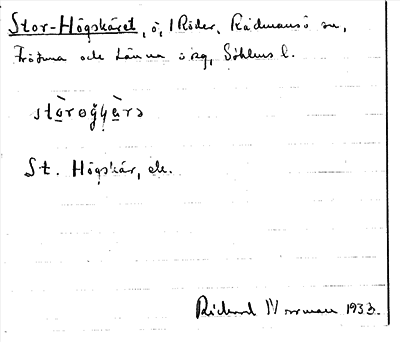 Stor-Högskäret, ö, i Röder, Rådmansö sn,
Frötuna och Länna skg, Sthlms l.
St. Högskär, ek.
Rickard Norman 1933.